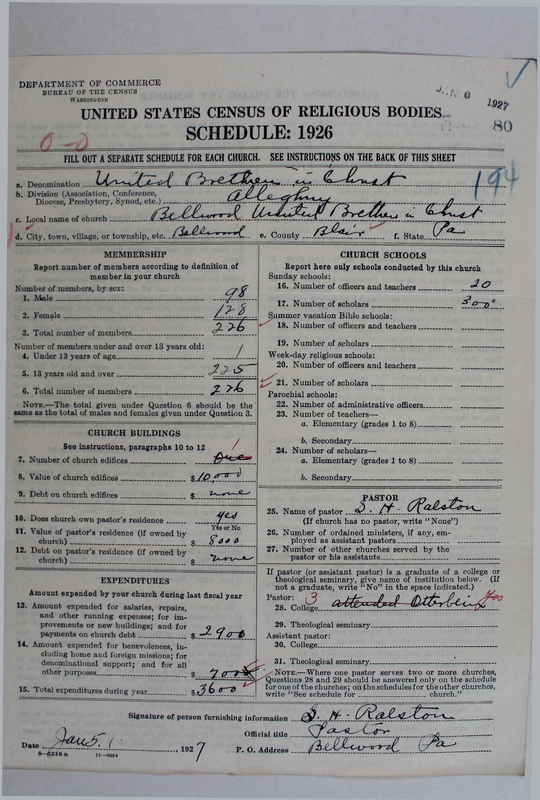 DEPARTMENT OF COMMERCE
BUREAU OF THE CENSUS
WASHINGTON
JAN 6 1927
80
UNITED STATES CENSUS OF RELIGIOUS BODIES
SCHEDULE: 1926
0-0
FILL OUT A SEPARATE SCHEDULE FOR EACH CHURCH. SEE INSTRUCTIONS ON THE BACK OF THIS SHEET
194
a. Denomination United Brethren in Christ
b. Division (Association, Conference, Diocese, Presbytery, Synod, etc.) Allegheny
c. Local name of church Bellwood United Brethren in Christ
d. City, town, village, or township, etc. Bellwood e. County Blair f. State Pa
MEMBERSHIP
Report number of members according to definition of
member in your church
Number of members, by sex:
1. Male 98
2. Female 128
3. Total number of members 226
Number of members under and over 13 years old:
4. Under 13 years of age 1
5. 13 years old and over 225
6. Total number of members 226
NOTE.—The total given under Question 6 should be the
same as the total of males and females given under Question 3.
CHURCH BUILDINGS
See instructions, paragraphs 10 to 12
7. Number of church edifices One 1
8. Value of church edifices $10000
9. Debt on church edifices $ none
10. Does church own pastor's residence yes
Yes or No
11. Value of pastor's residence (if owned by
church) $ 8000
12. Debt on pastor's residence (if owned by
church) $ none
EXPENDITURES
Amount expended by your church during last fiscal year
13. Amount expended for salaries, repairs,
and other running expenses; for im-
provements or new buildings; and for
payments on church debt $ 2900
14. Amount expended for benevolences, in-
cluding home and foreign missions; for
denominational support; and for all
other purposes $ 700
15. Total expenditures during year $ 3600
CHURCH SCHOOLS
Report here only schools conducted by this church
Sunday schools:
16. Number of officers and teachers 20
17. Number of scholars 300
Summer vacation Bible schools:
18. Number of officers and teachers
19. Number of scholars
Week-day religious schools:
20. Number of officers and teachers
21. Number of scholars
Parochial schools:
22. Number of administrative officers
23. Number of teachers—
a. Elementary (grades 1 to 8)
b. Secondary
24. Number of scholars—
a. Elementary (grades 1 to 8)
b. Secondary
PASTOR
25. Name of pastor S. H. Ralston
(If church has no pastor, write "None")
26. Number of ordained ministers, if any, em-
ployed as assistant pastors
27. Number of other churches served by the
pastor or his assistants
If pastor (or assistant pastor) is a graduate of a college or
theological seminary, give name of institution below. (If
not a graduate, write "No" in the space indicated.)
Pastor: 3
28. College attended Otterbein Yes
29. Theological seminary
Assistant pastor:
30. College
31. Theological seminary
NOTE.—Where one pastor serves two or more churches,
Questions 28 and 29 should be answered only on the schedule
for one of the churches; on the schedules for the other churches,
write "See schedule for church."
Signature of person furnishing information S. H. Ralston
Official title Pastor
Date Jan 5, 1927 P. O. Address Bellwood Pa
8-5518a 11-9064